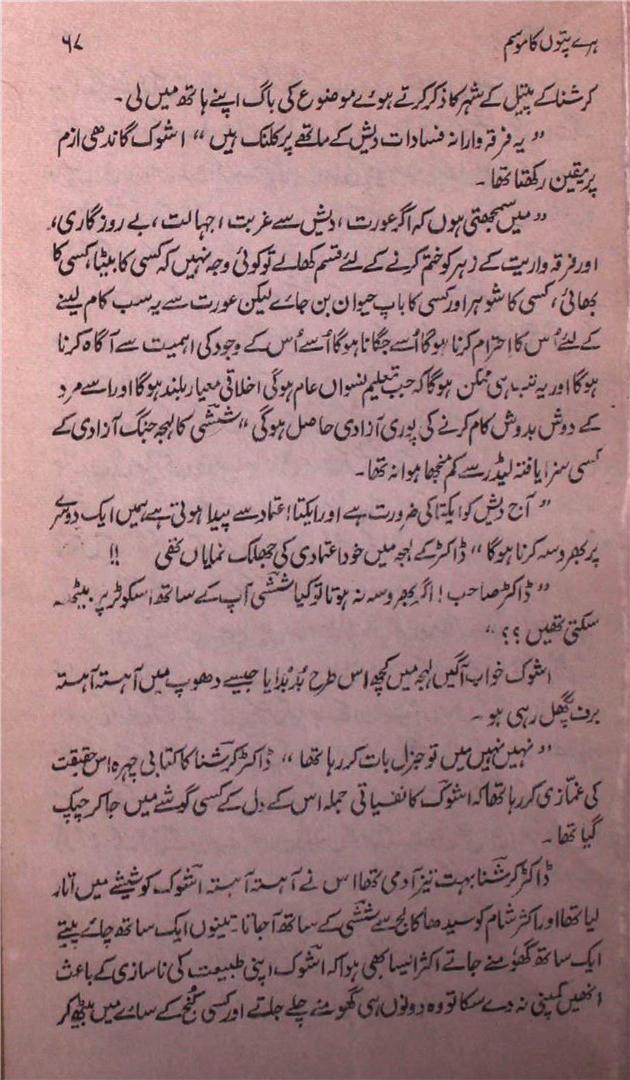 ہرے پتوں کا موسم ۶۷
کرشنا کے پیتل کے شہر کا ذکر کرتے ہوئے موضوع کی باگ اپنے ہاتھ میں لی۔
” یہ فرقہ وارانہ فسادات دیش کے ماتھے پر کلنک ہیں “ اشوک گاندھی ازم
پر یقین رکھتا تھا۔
” میں سمجھتی ہوں کہ اگر عورت ، دیش سے غربت ، جہالت ، بے روزگاری،
اور فرقہ واریت کے زہر کو ختم کرنے کے لئے قسم کھالے تو کوئی وجہ نہیں کہ کسی کا بیٹا ، کسی کا
بھائی ، کسی کا شوہر اور کسی کا باپ حیوان بن جائے لیکن عورت سے یہ سب کام لینے
کے لئے اُس کا احترام کرنا ہوگا اُسے جگانا ہوگا اُسے اُس کے وجود کی اہمیت سے آگاہ کرنا
ہوگا اور یہ تب ہی ممکن ہوگا کہ جب تعلیم نسواں عام ہوگی اخلاقی معیار بلند ہوگا اور اسے مرد
کے دوش بدوش کام کرنے کی پوری آزادی حاصل ہوگی “ ششی کا لہجہ جنگ آزادی کے
کسی سزا یافتہ لیڈر سے کم منجھا ہوا نہ تھا۔
” آج دیش کو ایکتا کی ضرورت ہے اور ایکتا اعتماد سے پیدا ہوتی ہے ہمیں ایک دوسرے
پر بھروسہ کرنا ہوگا “ ڈاکٹر کے لہجہ میں خود اعتمادی کی جھلک نمایاں تھی !!
” ڈاکٹر صاحب ! اگر بھروسہ نہ ہوتا تو کیا ششی آپ کے ساتھ اسکوٹر پر بیٹھ
سکتی تھیں ؟؟ “
اشوک خواب آگیں لہجہ میں کچھ اس طرح بُدبُدایا جیسے دھوپ میں آہستہ آہستہ
برف پگھل رہی ہو۔
” نہیں نہیں میں تو جنرل بات کر رہا تھا “ ڈاکٹر کرشنا کا کتابی چہرہ اس حقیقت
کی غمّازی کر رہا تھا کہ اشوک کا نفسیاتی جملہ اس کے دل کے کسی گوشے میں جا کر چپک
گیا تھا۔
ڈاکٹر کرشنا بہت تیز آدمی تھا اس نے آہستہ آہستہ اشوک کو شیشے میں اتار
لیا تھا اور اکثر شام کو سیدھا کالج سے ششی کے ساتھ آجاتا۔ تینوں ایک ساتھ چائے پیتے
ایک ساتھ گھومنے جاتے اکثر ایسا بھی ہوا کہ اشوک اپنی طبیعت کی ناسازی کے باعث
انھیں کمپنی نہ دے سکا تو وہ دونوں ہی گھومنے چلے جاتے اور کسی کُنج کے سائے میں بیٹھ کر